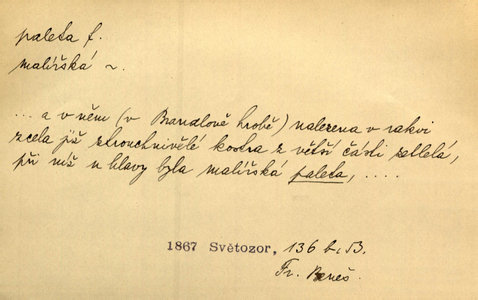 paleta f.
malířská ~.
... a v něm (v Brandlově hrobě) nalezena v rakvi
zcela již ztrouchnivělé kostra z větší části zetlelá,
při níž u hlavy byla malířská paleta, ....
1867 Světozor, 136 b,
Fr. Beneš.